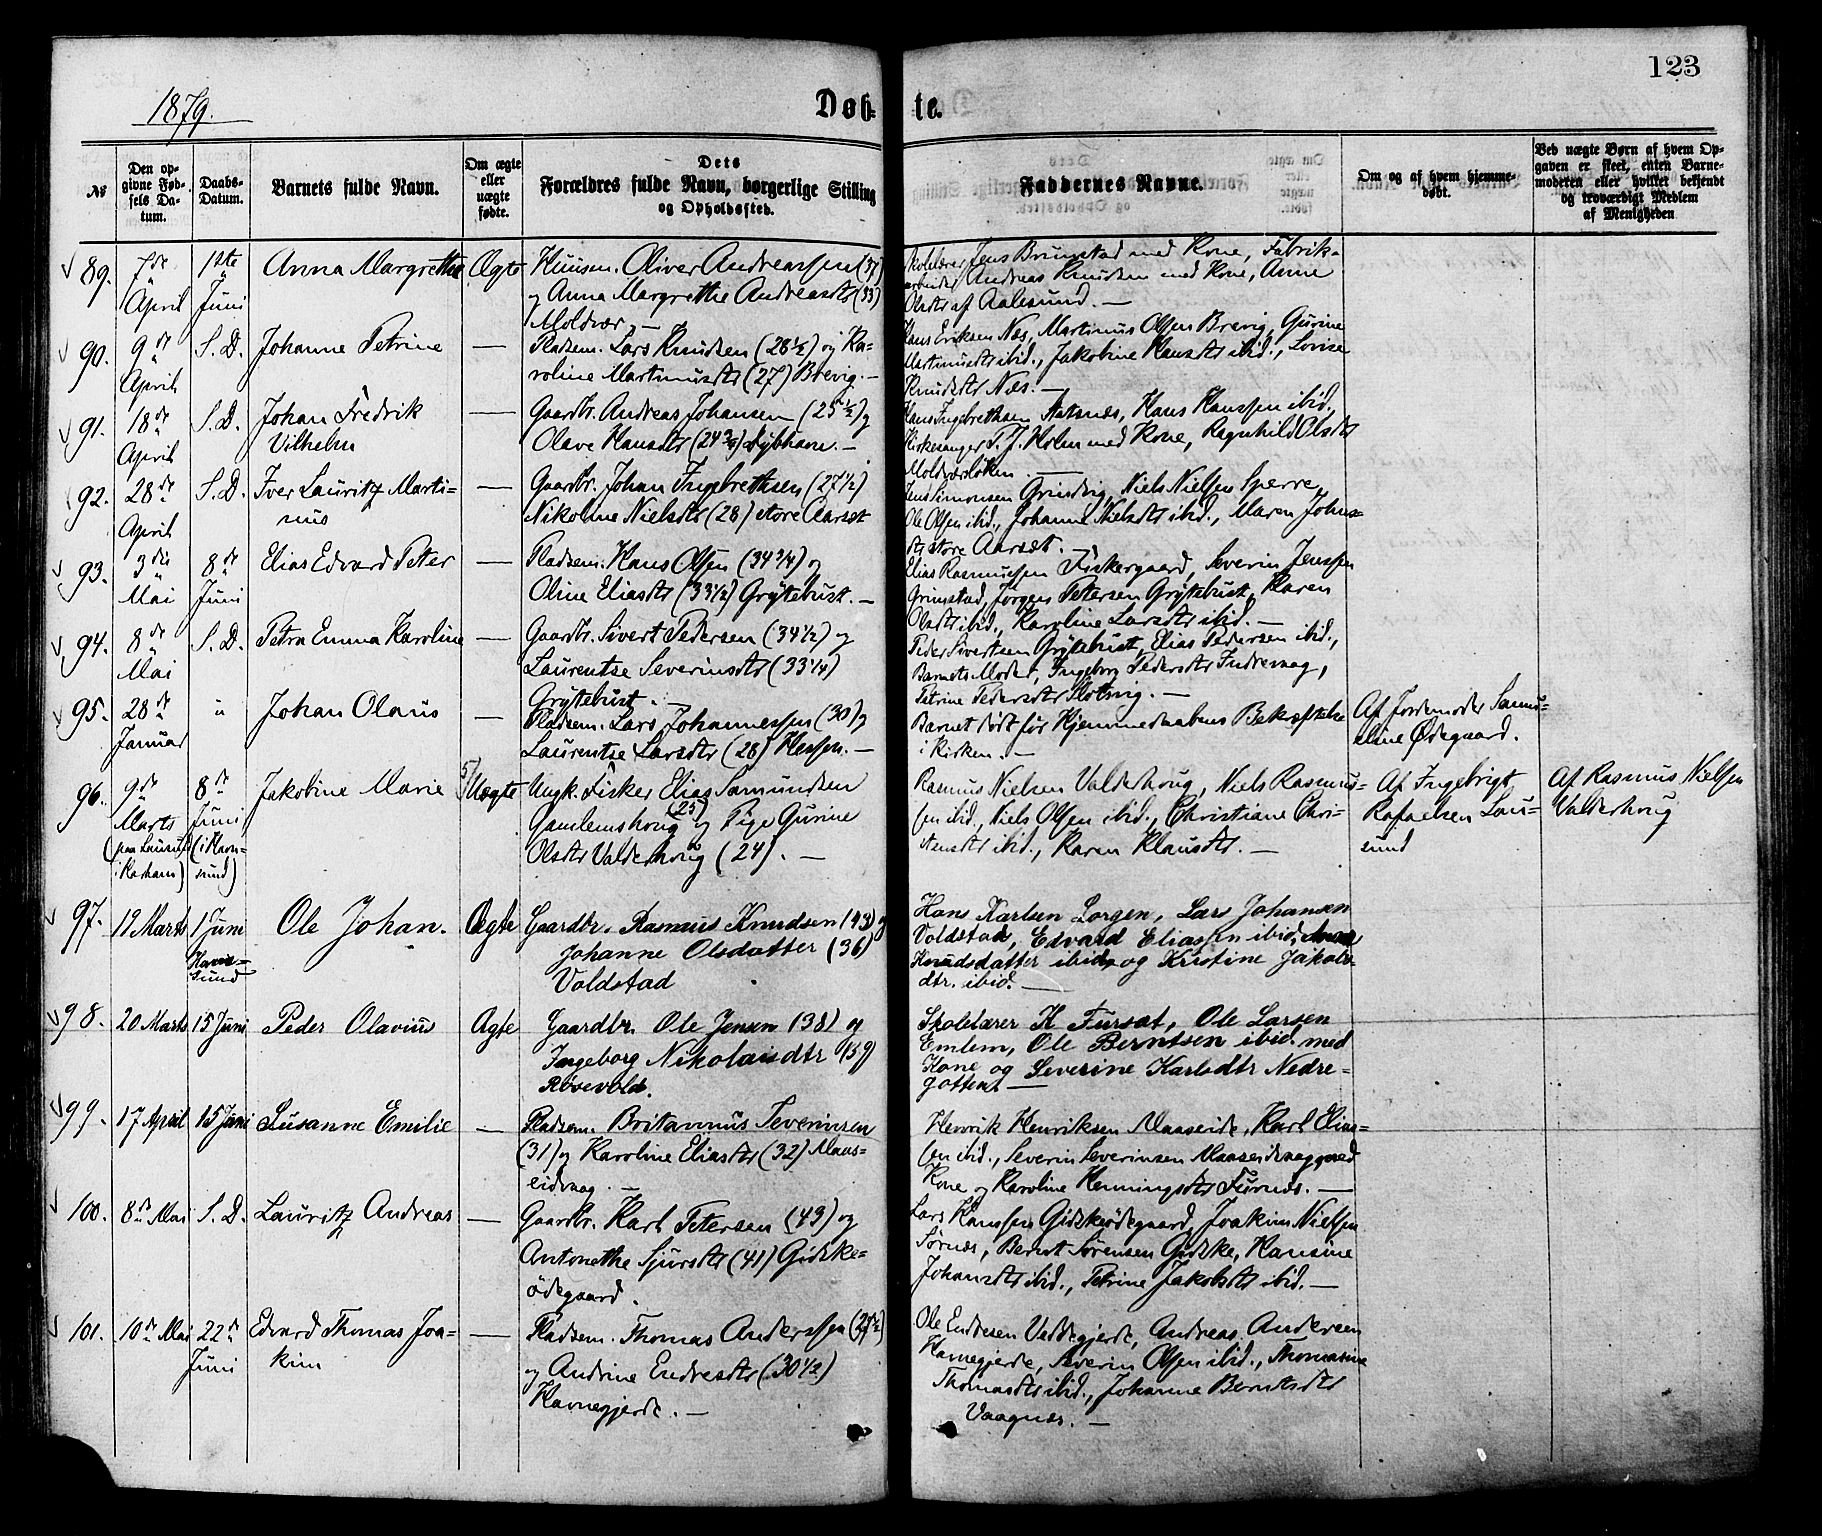 123
1879.
Døbte.
№
Den opgivne Fødsels Datum.
Daabs-Datum.
Barnets fulde Navn.
Om ægte eller uægte fødte.
Dets Forældres fulde Navn, borgerlige Stilling og Opholdssted.
Faddernes Navne.
Om og af hvem hjemmedøbt.
Ved uægte Børn af hvem Opgaven er skeet, enten Barnemoderen eller hvilket bekjendt og troværdigt Medlem af Menigheden
89. 7de April 1ste Juni Anna Margrethe Ægte
Huusm. Oliver Andreassen (37)
og Anna Margrethe Andreasdtr (33)
Moldvær. —
Skolelærer Jens Brunstad med Kone, Fabrik-
arbeider Andreas Knudsen med Kone, Anne
Olsdtr af Aalesund. —
90. 9de April S.D. Johanne Petrine —
Pladsm. Lars Knudsen (26½) og Ka-
roline Martinusdtr (27) Brevig. —
Hans Eriksen Næs, Martinus Olsen Brevig, Gurine
Martinusdtr ibid., Jakobine Hansdtr ibid., Lovise
Knudsdtr Næs. —
91. 18de April S.D. Johan Fredrik
Vilhelm —
Gaardbr. Andreas Johansen (25½) og
Olave Hansdtr (24¾) Dybhavn. —
Hans Ingebrethsen Aatsnæs, Hans Hanssen ibid.,
Kirkesanger P. J. Holm med Kone, Ragnhild Olsdtr
Moldværsløken. —
92. 28de April S.D. Iver Lauritz Marti-
nus —
Gaardbr. Johan Ingebrethsen (27½)
Nikoline Nielsdtr (28) store Aarsæt
Jens Simonsen Grindvig, Niels Nielsen Sperre,
Ole Olsen ibid., Johanne Nielsdtr ibid., Maren Johns-
dtr store Aarsæt. —
93. 3die Mai 8de Juni Elias Edvard Peter —
Pladsm. Hans Olsen (34¾) og
Oline Eliasdtr (33½) Grytebust. —
Elias Rasmussen Fiskergaard, Severin Jenssen
Grimstad, Jørgen Petersen Grytebust, Karen
Olsdtr ibid., Karoline Larsdtr ibid. —
94. 8de Mai S.D. Petra Emma Karoline —
Gaardbr. Sivert Pedersen (34½) og
Laurentse Severinsdtr (33¼)
Grytebust. —
Peder Sivertsen Grytebust, Elias Pedersen ibid.,
Barnets Moder, Ingeborg Pedersdtr Indrevaag,
Petrine Pedersdtr Flotvig. —
95. 28de Januar " Johan Olaus —
Pladsm. Lars Johannessen (30) og
Laurentse Larsdtr (28) Hessen. —
Barnet dødt før Hjemmedaabens Bekræftelse
i Kirken. —
Af Jordemoder Samu-
eline Ødegaard.
96. 9de Marts (paa Laurits i Karhavn) 8de Juni (i Havn-
sund) Jakobine Marie 5/ Uægte
Ungk. Fisker Elias Samundsen
Gamlemshoug (25) og Pige Gurine
Olsdtr Valderhoug (24). —
Rasmus Nielsen Valderhoug, Niels Rasmus-
sen ibid., Niels Olsen ibid., Christiane Chri-
stensdtr ibid., Karen Klausdtr. —
Af Ingebrigt
Rafaelsen Lau-
sund
Af Rasmus Nielsen
Valderhoug
97. 19 Marts 1 Juni Havn-
sund Ole Johan. Ægte
Gaardbr. Rasmus Knudsen (43) og
Johanne Olsdatter (36)
Voldstad
Hans Karlsen Longen, Lars Johansen
Voldstad, Edvard Eliassen ibid., Anne
Knudsdatter ibid. og Kristine Jakobs-
dtr. ibid. —
98. 20 Marts 15 Juni Peder Olavius Ægte
Gaardbr. Ole Jensen (38) og
Ingeborg Nikolaisdtr (39)
Røsevold.
Skolelærer K Fursæt, Ole Larsen
Emlem, Ole Berntsen ibid. med
Kone og Severine Karlsdtr Nedre-
gotten. —
99. 17 April 15 Juni Susanne Emilie —
Pladsm. Britanius Severinsen
(31) og Karoline Eliasdtr (32) Maas-
eidvaag. —
Henrik Henriksen Maaseide, Karl Elias-
sen ibid., Severin Severinsen Maaseidvaag med
Kone og Karoline Henningsdtr Furnæs. —
100. 8de Mai S.D. Lauritz Andreas —
Gaardbr. Karl Petersen (49) og
Antonethe Sjursdtr (41) Gidske-
ødegaard.
Lars Hanssen Gidskeødegaard, Joakim Nielsen
Sørnæs, Bernt Sørensen Gidske, Hansine
Johansdtr ibid., Petrine Jakobsdtr ibid. —
101. 10de Mai 22de Juni Edvard Thomas Joa-
kim —
Pladsm. Thomas Anderssen (27½)
og Andrine Endresdtr (30½)
Havnegjerde. —
Ole Endresen Veddegjerde, Andreas Andersen
Havnegjerde, Severin Olsen ibid., Thomasine
Thomasdtr ibid., Johanne Berntsdtr
Vaagnæs. —